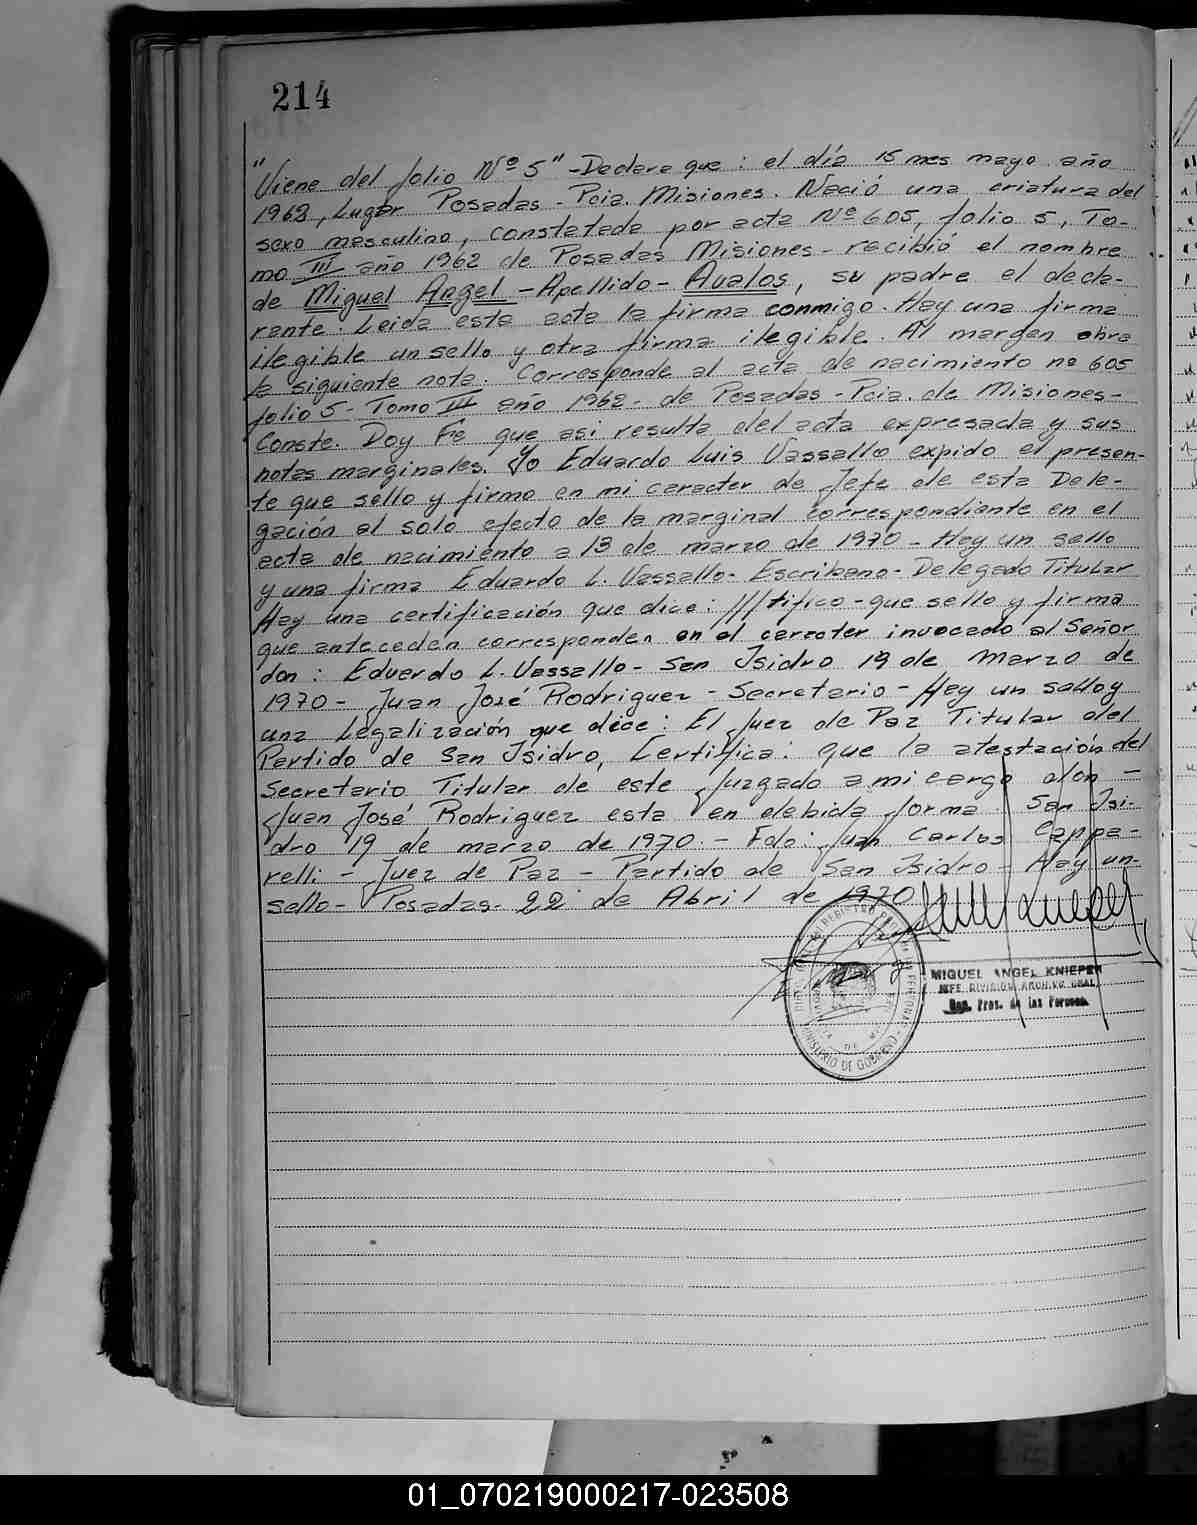 214
"Viene del folio Nº 5" - Declara que: el día 15 mes mayo año
1962, Lugar Posadas - Pcia. Misiones. Nació una criatura del
sexo masculino, constatada por acta Nº 605, folio 5, To-
mo III año 1962 de Posadas Misiones - recibió el nombre
de Miguel Angel - Apellido - Avalos, su padre el decla-
rante. Leida esta acta la firma conmigo. Hay una firma
ilegible un sello y otra firma ilegible. Al margen obra
la siguiente nota. Corresponde al acta de nacimiento nº 605
folio 5 - Tomo III año 1962 - de Posadas - Pcia. de Misiones -
Conste. Doy Fe que asi resulta del acta expresada y sus
notas marginales. Yo Eduardo Luis Vassallo expido el presen-
te que sello y firmo en mi caracter de Jefe de esta Dele-
gación al solo efecto de la marginal correspondiente en el
acta de nacimiento a 13 de marzo de 1970 - Hay un sello
y una firma Eduardo L. Vassallo - Escribano - Delegado Titular
Hay una certificación que dice: ///tifico - que sello y firma
que anteceden corresponden en el caracter invocado al Señor
don: Eduardo L. Vassallo - San Isidro 19 de Marzo de
1970 - Juan José Rodriguez - Secretario - Hay un sello y
una Legalización que dice: El Juez de Paz Titular del
Partido de San Isidro, Certifica: que la atestación del
Secretario Titular de este Juzgado a mi cargo don -
Juan José Rodriguez esta en debida forma. San Isi-
dro 19 de marzo de 1970. - Fdo: Juan Carlos Cappa-
relli - Juez de Paz - Partido de San Isidro - Hay un-
sello - Posadas - 22 de Abril de 1970
MIGUEL ANGEL KNIEPER
JEFE DIVISION ARCHIVO GRAL.
Reg. Prov. de las Personas
MINISTERIO DE GOBIERNO
01_070219000217-023508